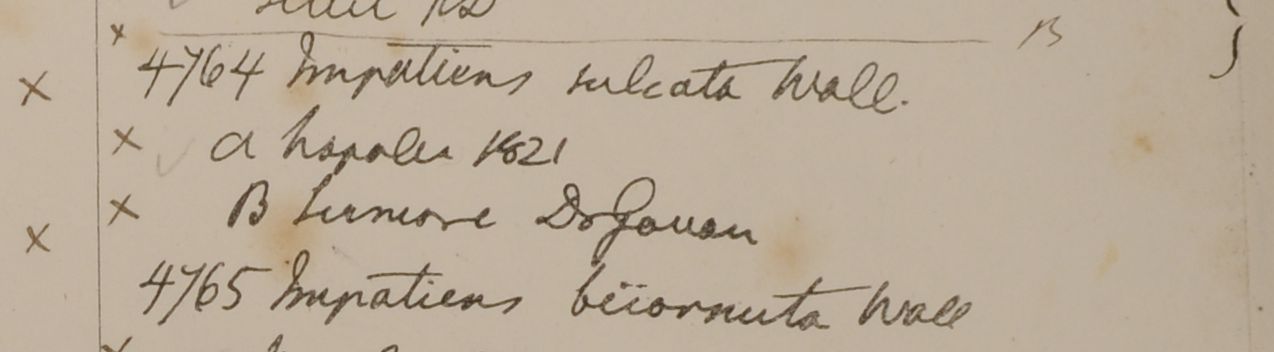 B
4764 Impatiens sulcata Wall.
a Napalia 1821
B Sirmore Dr Govan
4765 Impatiens bicornuta Wall